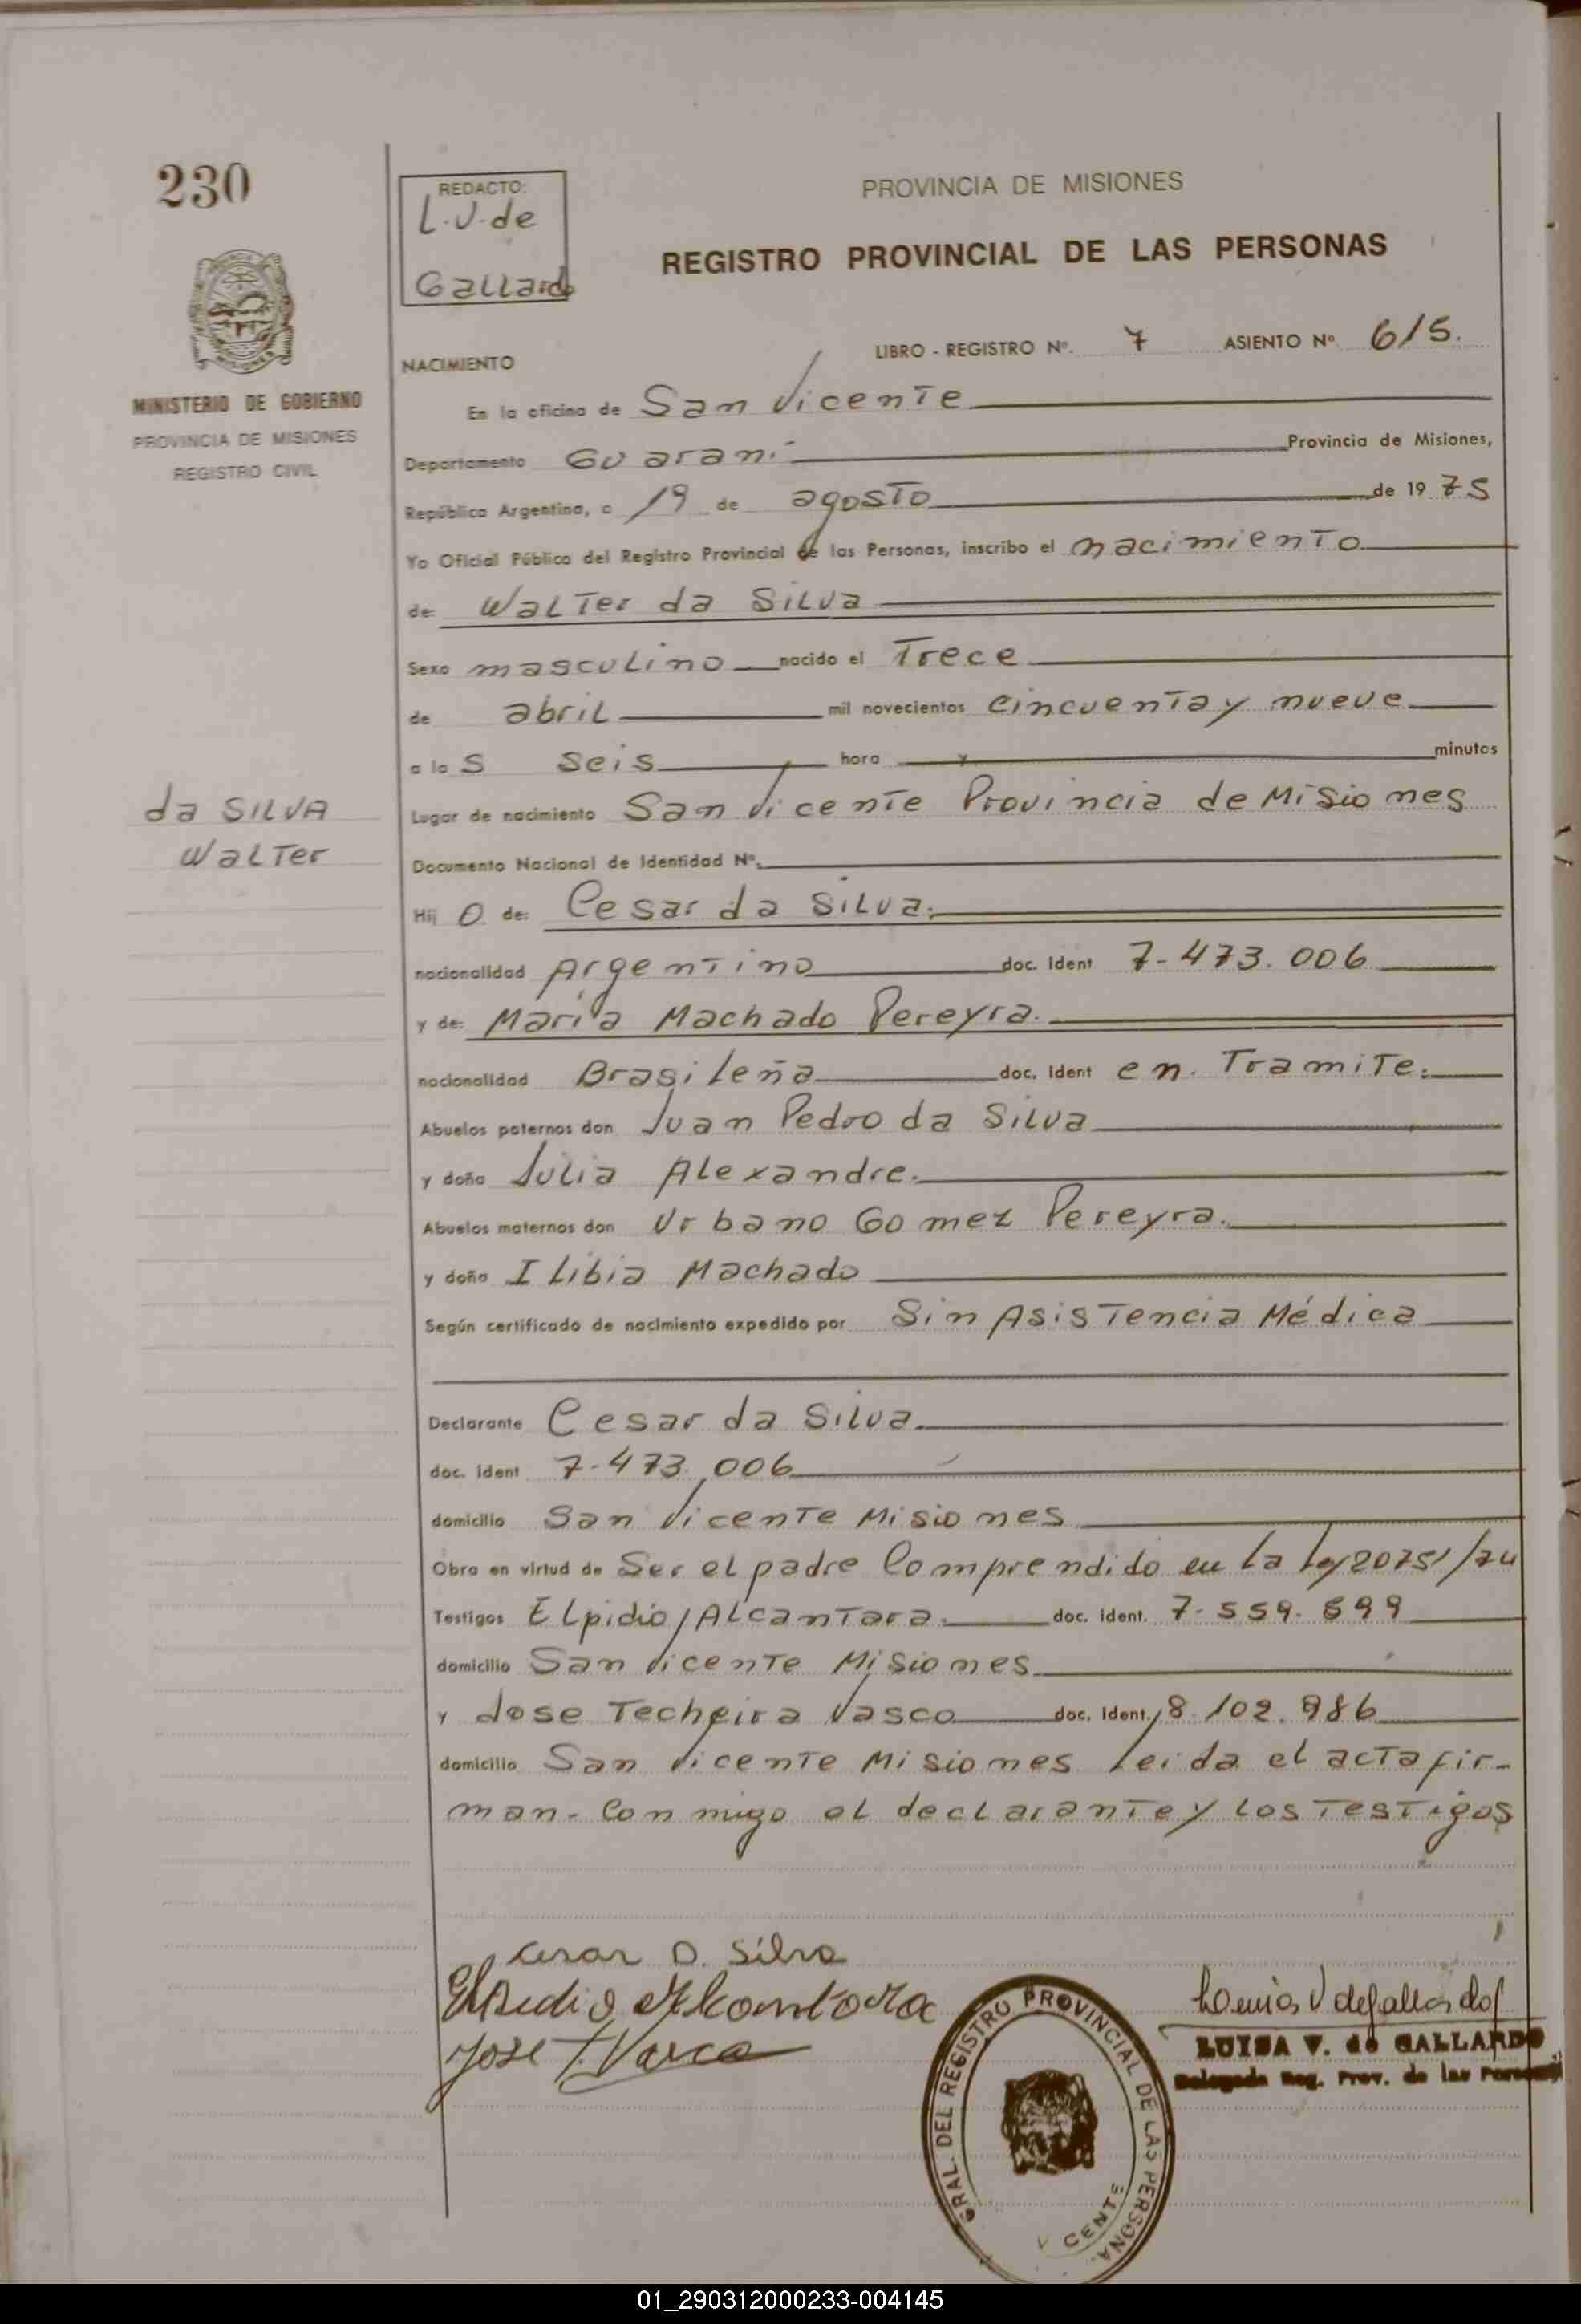 230
REDACTO:
L.V. de
Gallardo
PROVINCIA DE MISIONES
REGISTRO PROVINCIAL DE LAS PERSONAS
MINISTERIO DE GOBIERNO
PROVINCIA DE MISIONES
REGISTRO CIVIL
LIBRO - REGISTRO Nº. 7 ASIENTO Nº 615.
NACIMIENTO
En la oficina de San Vicente
Departamento Guaraní Provincia de Misiones,
República Argentina, a 19 de agosto de 1975
Yo Oficial Público del Registro Provincial de las Personas, inscribo el nacimiento
de: Walter da Silva
Sexo masculino nacido el Trece
de abril mil novecientos cincuenta y nueve
a las seis hora y minutos
da SILVA
Walter
Lugar de nacimiento San Vicente Provincia de Misiones
Documento Nacional de Identidad Nº.
Hijo de: Cesar da Silva.
nacionalidad Argentino doc. ident 7-473.006
y de: María Machado Pereyra.
nacionalidad Brasileña doc. ident en Tramite.
Abuelos paternos don Juan Pedro da Silva
y doña Julia Alexandre.
Abuelos maternos don Urbano Gomez Pereyra.
y doña Ilibia Machado
Según certificado de nacimiento expedido por Sin Asistencia Médica
Declarante Cesar da Silva
doc. ident 7-473.006
domicilio San Vicente Misiones
Obra en virtud de Ser el padre Comprendido en la ley 20751/74
Testigos Elpidio Alcantara. doc. ident. 7-559.699
domicilio San Vicente Misiones
y Jose Techeira Vasco doc. ident. 8.102.986
domicilio San Vicente Misiones leida el acta fir-
man- Conmigo el declarante y los Testigos
Cesar D. Silva
Elpidio Alcantara
Jose T. Vasco
LUISA V. de GALLARDO
Delegada Reg. Prov. de las Personas
GRAL. DEL REGISTRO PROVINCIAL DE LAS PERSONA.
V CENTE
01_290312000233-004145